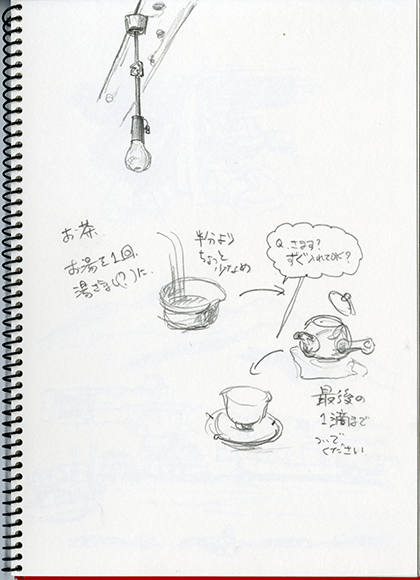 お茶
お湯を1回
湯ざまし(?)に
半分より
ちょっと
少なめ
Q.さます?
すぐ入れてOK?
最後の
1滴まで
ついで
ください